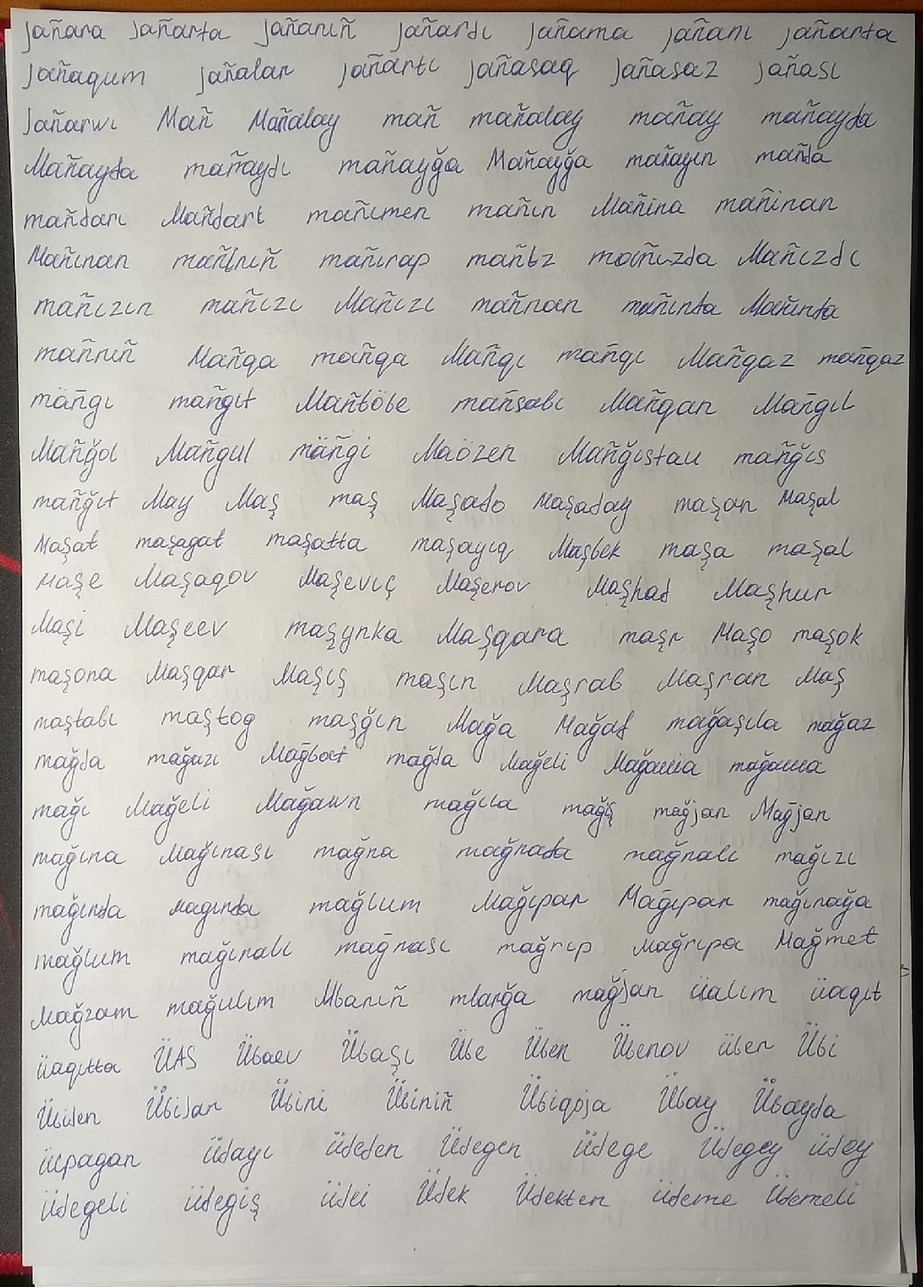 jañara jañarta jañanıñ jañardı jañama jañanı jañarta
jañaqum jañalar jañartı jañasaq jañasaz jañası
jañarwı Mañ Mañalay mañ mañalay mañay mañayda
Mañayda mañaydı mañayğa Mañayğa mañayın mañda
mañdarı Mañdarı mañımen mañın Mañina mañinan
Mañınan mañınıñ mañırap mañız mañızda Mañızdı
mañızın mañızı Mañızı mañnan mañınta Mañınta
mañnıñ Mañqa mañqa Mañqı mañqı Mañqaz mañqaz
mäñgı mañgıt Mañtöbe mañsabı Mañqan Mañgıl
Mañğol Mañgul mäñgi Maözen Mañğıstau mañğıs
mañğıt May Maş maş Maşado Maşaday maşan Maşal
Maşat maşaqat maşatta maşayıq Maşbek maşa maşal
Maşe Maşaqov Maşevıç Maşerov Maşhad Maşhur
Maşi Maşeev maşynka Maşqara maşr Maşo maşok
maşona Maşqar Maşış maşın Maşrab Maşran Maş
maştabı maştog maşğın Mağa Mağad mağaşıla mağaz
mağda mağazı Mağbat mağda Mağeli Mağauıa mağauıa
mağı Mağeli Mağawn mağıla mağış mağjan Mağjan
mağına Mağınası mağna mağnada mağnalı mağızı
mağında mağında mağlum Mağıpar Mağıpar mağınağa
mağlum mağınalı mağnası mağrıp Mağrıpa Mağmet
Mağzam mağulım Mbanıñ mbarğa mağjan üalım üaqıt
üaqıtta ÜAS Übaev Übaşı Übe Üben Übenov über Übi
Übiden Übidar Übini Übiniñ Übiqoja Übay Übayda
üıpagan Üdayı üdeden Üdegen üdege Üdegey üdey
üdegeli üdegiş üdei Üdek Üdekten üdeme Üdemeli